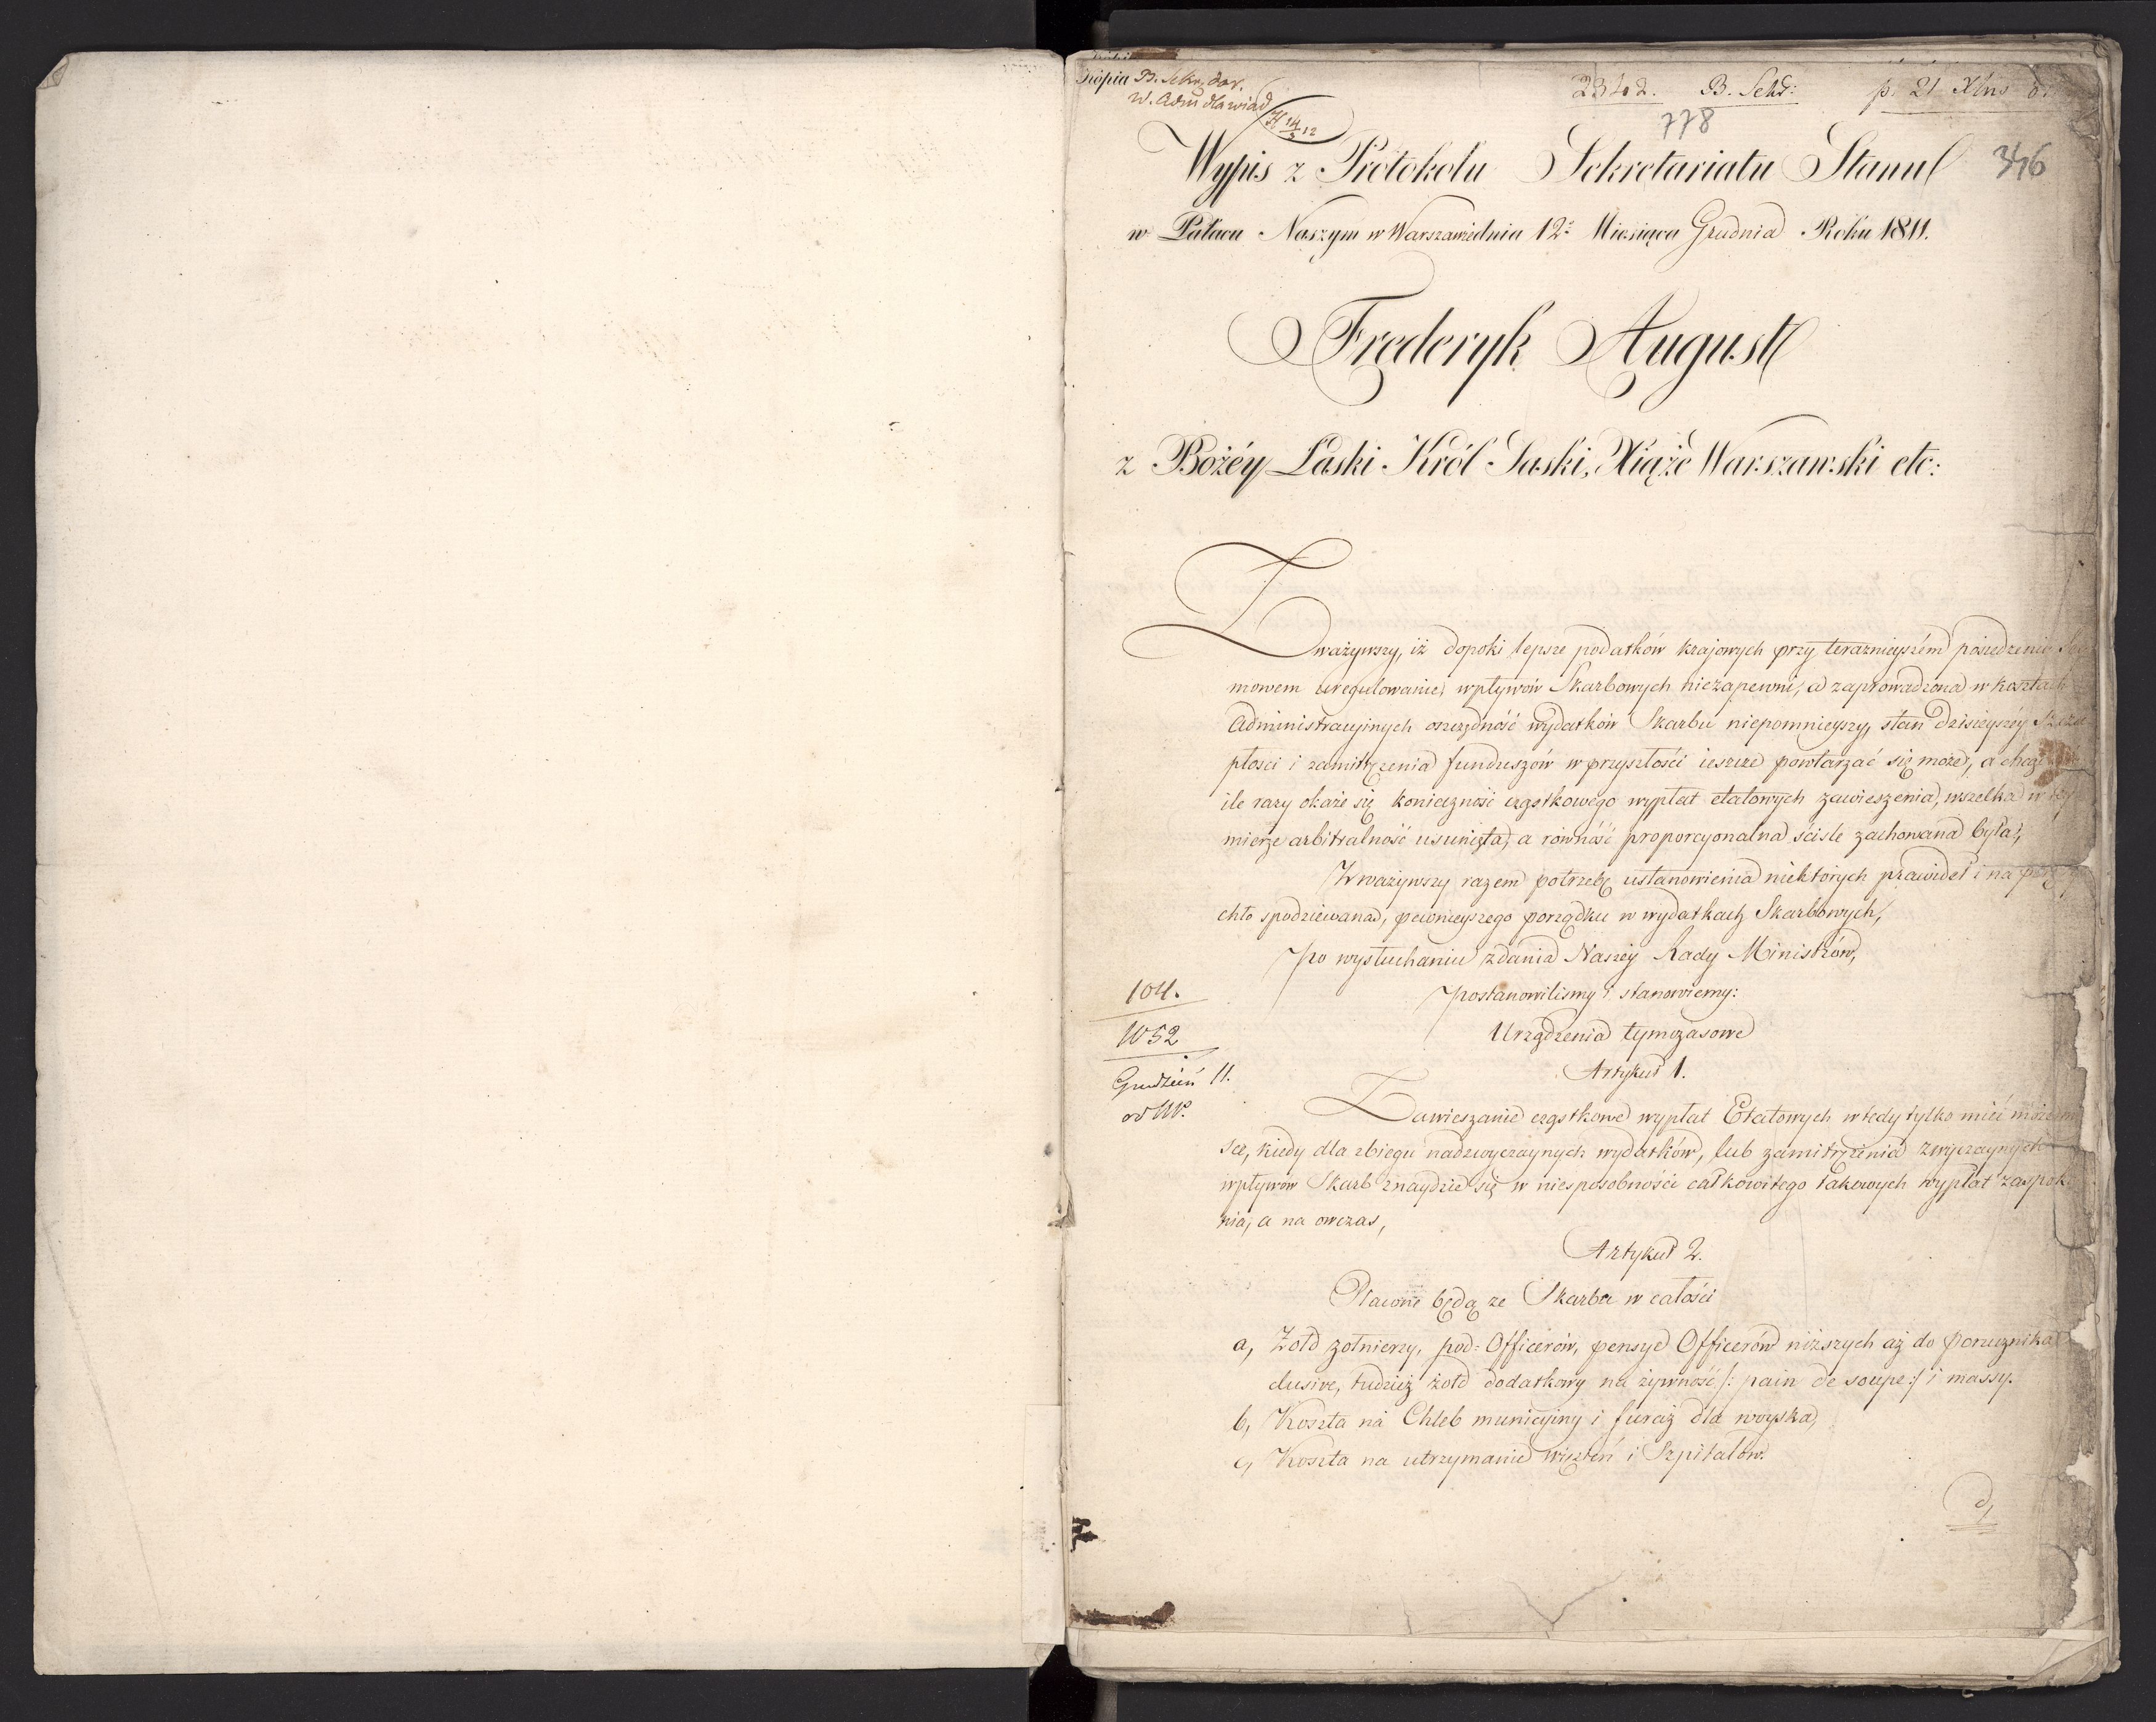 Kopia B. Sekr. dor.
W. Adm
14/3 12
2342. B. Sekr: p. 21 Xbris
778
346
Wypis z Protokołu Sekretariatu Stanu
w Pałacu Naszym w Warszawie dnia 12: Miesiąca Grudnia Roku 1811.
Frederyk August
z Bożéy Łaski Król Saski, Xiąże Warszawski etc:
Zważywszy, iż dopoki lepsze podatków krajowych przy teraznieyszém posiedzeniu
mowem uregulowanie, wpływów Skarbowych niezapewni, a zaprowadzona w kosztach
Administracyinych oszczędność wydatków Skarbu niepomnieyszy, stan dzisieyszéy
płosci i zamitrężenia funduszów w przyszłości ieszcze powtarzać się może, a chcąc
ile razy okaże się konieczność cząstkowego wypłat etatowych zawieszenia, wszelka w
mierze arbitralność usunięta, a równość proporcyonalna ściśle zachowana była,
Zważywszy razem potrzebę ustanowienia niektórych prawideł i na
chło spodziewana, pewnieyszego porządku w wydatkach Skarbowych,
Po wysłuchaniu zdania Naszéy Rady Ministrów,
postanowilismy i stanowiemy:
Urządzenia tymczasowe
Artykuł 1.
104.
1052
Grudzień 11.
od
Zawieszanie cząstkowe wypłat Etatowych wtedy tylko mieć może
sce, kiedy dla zbiegu nadzwyczaynych wydatków, lub zamitrężenia zwyczaynych
wpływów Skarb znaydzie się w niesposobności całkowitego takowych wypłat zaspok
nia, a na owczas,
Artykuł 2.
Płacone będą ze Skarbu w całości
a, Żołd żołnierzy, pod: Officerów, pensye Officerów niższych aż do porucznika
clusive, tudzież żołd dodatkowy na żywność /: pain de soupe :/ i massy.
b, Koszta na Chleb municyiny i furaż dla woyska,
c, Koszta na utrzymanie więzień i Szpitalów.
d,